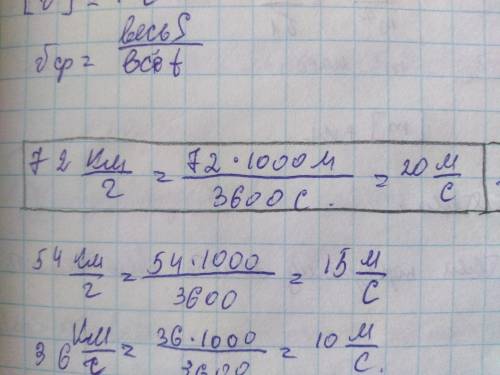 vср = весь S / всё t
72 км/ч = 72·1000м / 3600с. = 20 м/с
54 км/ч = 54·1000 / 3600 = 15 м/с
36 км/ч = 36·1000 / 3600 = 10 м/с.